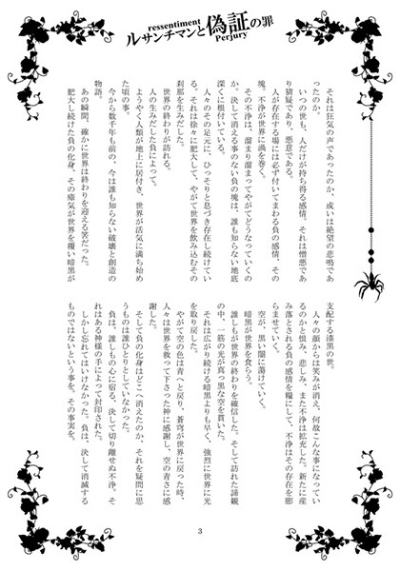 ressentiment
ルサンチマンと偽証の罪
Perjury
それは狂気の声であったのか、或いは絶望の悲鳴であ
ったのか。
いつの世も、人だけが持ち得る感情。それは憎悪であ
り猜疑であり、悪意である。
人が存在する場には必ず付いてまわる負の感情、その
塊。不浄が世界に渦を巻く。
その不浄は、溜まり溜まってやがてどうなっていくの
か。決して消える事のない負の塊は、誰も知らない地底
深くに根付いている。
人々のその足元に、ひっそりと息づき存在し続けてい
る。それは徐々に肥大して、やがて世界を飲み込むその
刹那を生みだした。
世界の終わりが訪れる。
人の生みだした負によって。
ようやく人類が地上に居付き、世界が活気に満ち始め
た頃の事。
今から数千年も前の、今は誰も知らない破壊と創造の
物語。
あの瞬間、確かに世界は終わりを迎える筈だった。
肥大し続けた負の化身、その瘴気が世界を覆い暗黒が
支配する漆黒の世。
人々の顔からは笑みが消え、何故こんな事になってい
るのかと恨み、悲しみ、また不浄は拡充した。新たに産
み落とされる負の感情を糧にして、不浄はその存在を膨
らませていく。
空が、黒い闇に蕩けていく。
暗黒が世界を食らう。
誰しもが世界の終わりを確信した。そして訪れた諦観
の中、一筋の光が真っ黒な空を貫いた。
それは広がり続ける暗黒よりも早く、強烈に世界に光
を取り戻した。
やがて空の色は青へと戻り、蒼穹が世界に戻った時、
人々は世界を救って下さった神に感謝し、空の青さに感
謝した。
そして負の化身はどこへ消えたのか、それを疑問に思
うものは誰ひとりとしていなかった。
負は、誰もの心に宿る、決して切り離せぬ不浄。そ
れはある神様の手によって封印された。
しかし忘れてはいけなかった。負は、決して消滅する
ものではないという事を、その事実を。
3